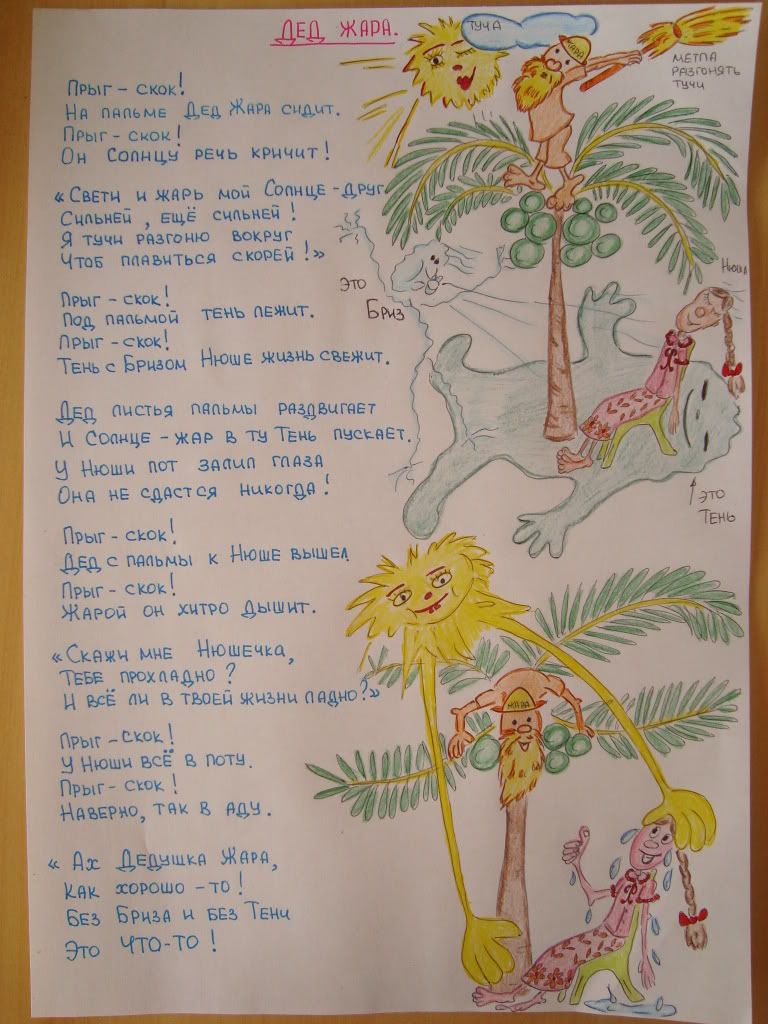 ДЕД ЖАРА.
Прыг - скок!
На пальме Дед Жара сидит.
Прыг - скок!
Он Солнцу речь кричит!
«Свети и жарь мой Солнце - друг
Сильней, ещё сильней!
Я тучи разгоню вокруг
Чтоб плавиться скорей!»
Прыг - скок!
Под пальмой тень лежит.
Прыг - скок!
Тень с Бризом Нюше жизнь свежит.
Дед листья пальмы раздвигает
И Солнце - жар в ту Тень пускает.
У Нюши пот залил глаза
Она не сдастся никогда!
Прыг - скок!
Дед с пальмы к Нюше вышел
Прыг - скок!
Жарой он хитро дышит.
«Скажи мне Нюшечка,
Тебе прохладно?
И всё ли в твоей жизни ладно?»
Прыг - скок!
У Нюши всё в поту.
Прыг - скок!
Наверно, так в аду.
«Ах Дедушка Жара,
Как хорошо - то!
Без Бриза и без Тени
Это ЧТО-ТО!
ТУЧА
ЖАРА
МЕТЛА
РАЗГОНЯТЬ
ТУЧИ
Это
Бриз
Нюша
Это
Тень
ЖАРА